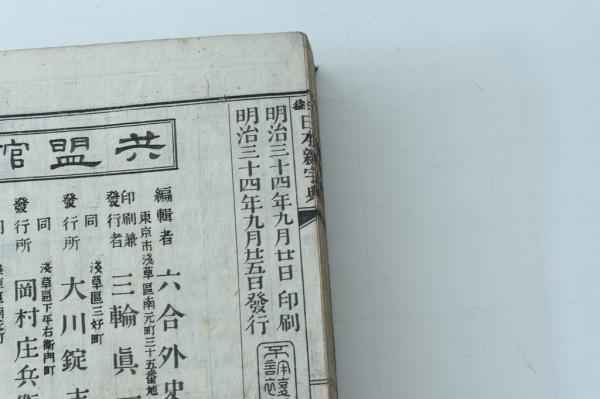 日本新字典
明治三十四年九月廿日 印刷
明治三十四年九月廿五日發行
共盟館
編輯者 六合外史
東京市淺草區南元町三十五番地
印刷兼發行者 三輪眞
淺草區三好町
同 發行所 大川錠吉
淺草區下平右衞門町
同 發行所 岡村庄兵衞